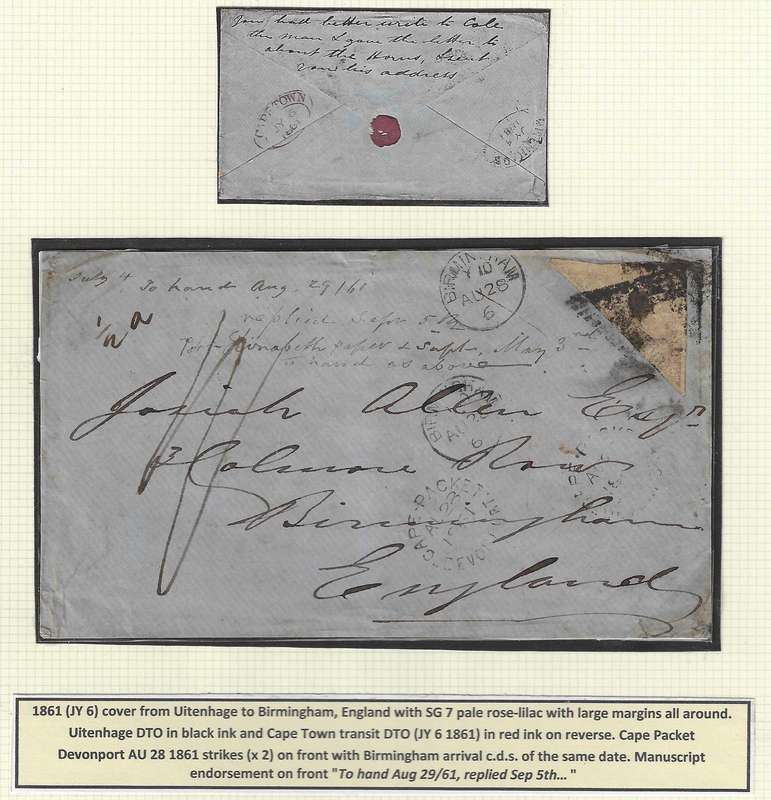 You had better write to Cole
the man I gave the letter to
about the Horns, I sent
you his address
CAPE TOWN
JY 6
1861
July 4 To hand Aug. 29/61
replied Sept 5th
Port Elizabeth paper & Supt. May 3rd
to hand as above
BIRMINGHAM
AU 28
6
Josiah Allen Esqr
3 Colmore Row
Birmingham
England
BIRMINGHAM
AU 28
6
CAPE-PACKET
AU 28
1861
DEVONPORT
1861 (JY 6) cover from Uitenhage to Birmingham, England with SG 7 pale rose-lilac with large margins all around.
Uitenhage DTO in black ink and Cape Town transit DTO (JY 6 1861) in red ink on reverse. Cape Packet
Devonport AU 28 1861 strikes (x 2) on front with Birmingham arrival c.d.s. of the same date. Manuscript
endorsement on front "To hand Aug 29/61, replied Sep 5th... "